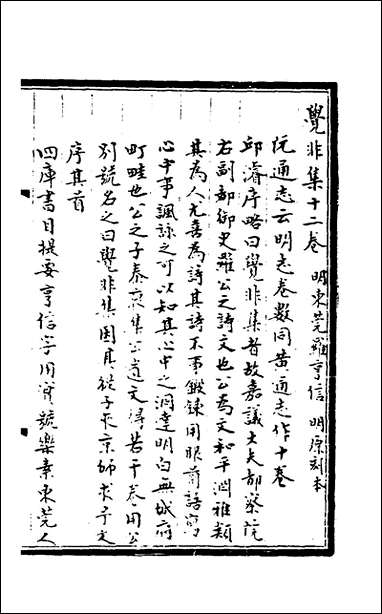 覺非集十二卷 明東莞羅亨信 明原刻本
阮通志云明志卷數同黃通志作十卷
邱濬序略曰覺非集者故嘉議大夫都察院
右副都御史羅公之詩文也公為文和平溫雅類
其為人尤善為詩其詩不事鍛鍊用眼前語寫
心中事諷詠之可以知其心中之洞達明白無城府
町畦也公之子泰裒集公遺文得若干卷用公
別號名之曰覺非集因其從子來京師求予文
序其首
四庫書目提要亨信字用實號樂素東莞人